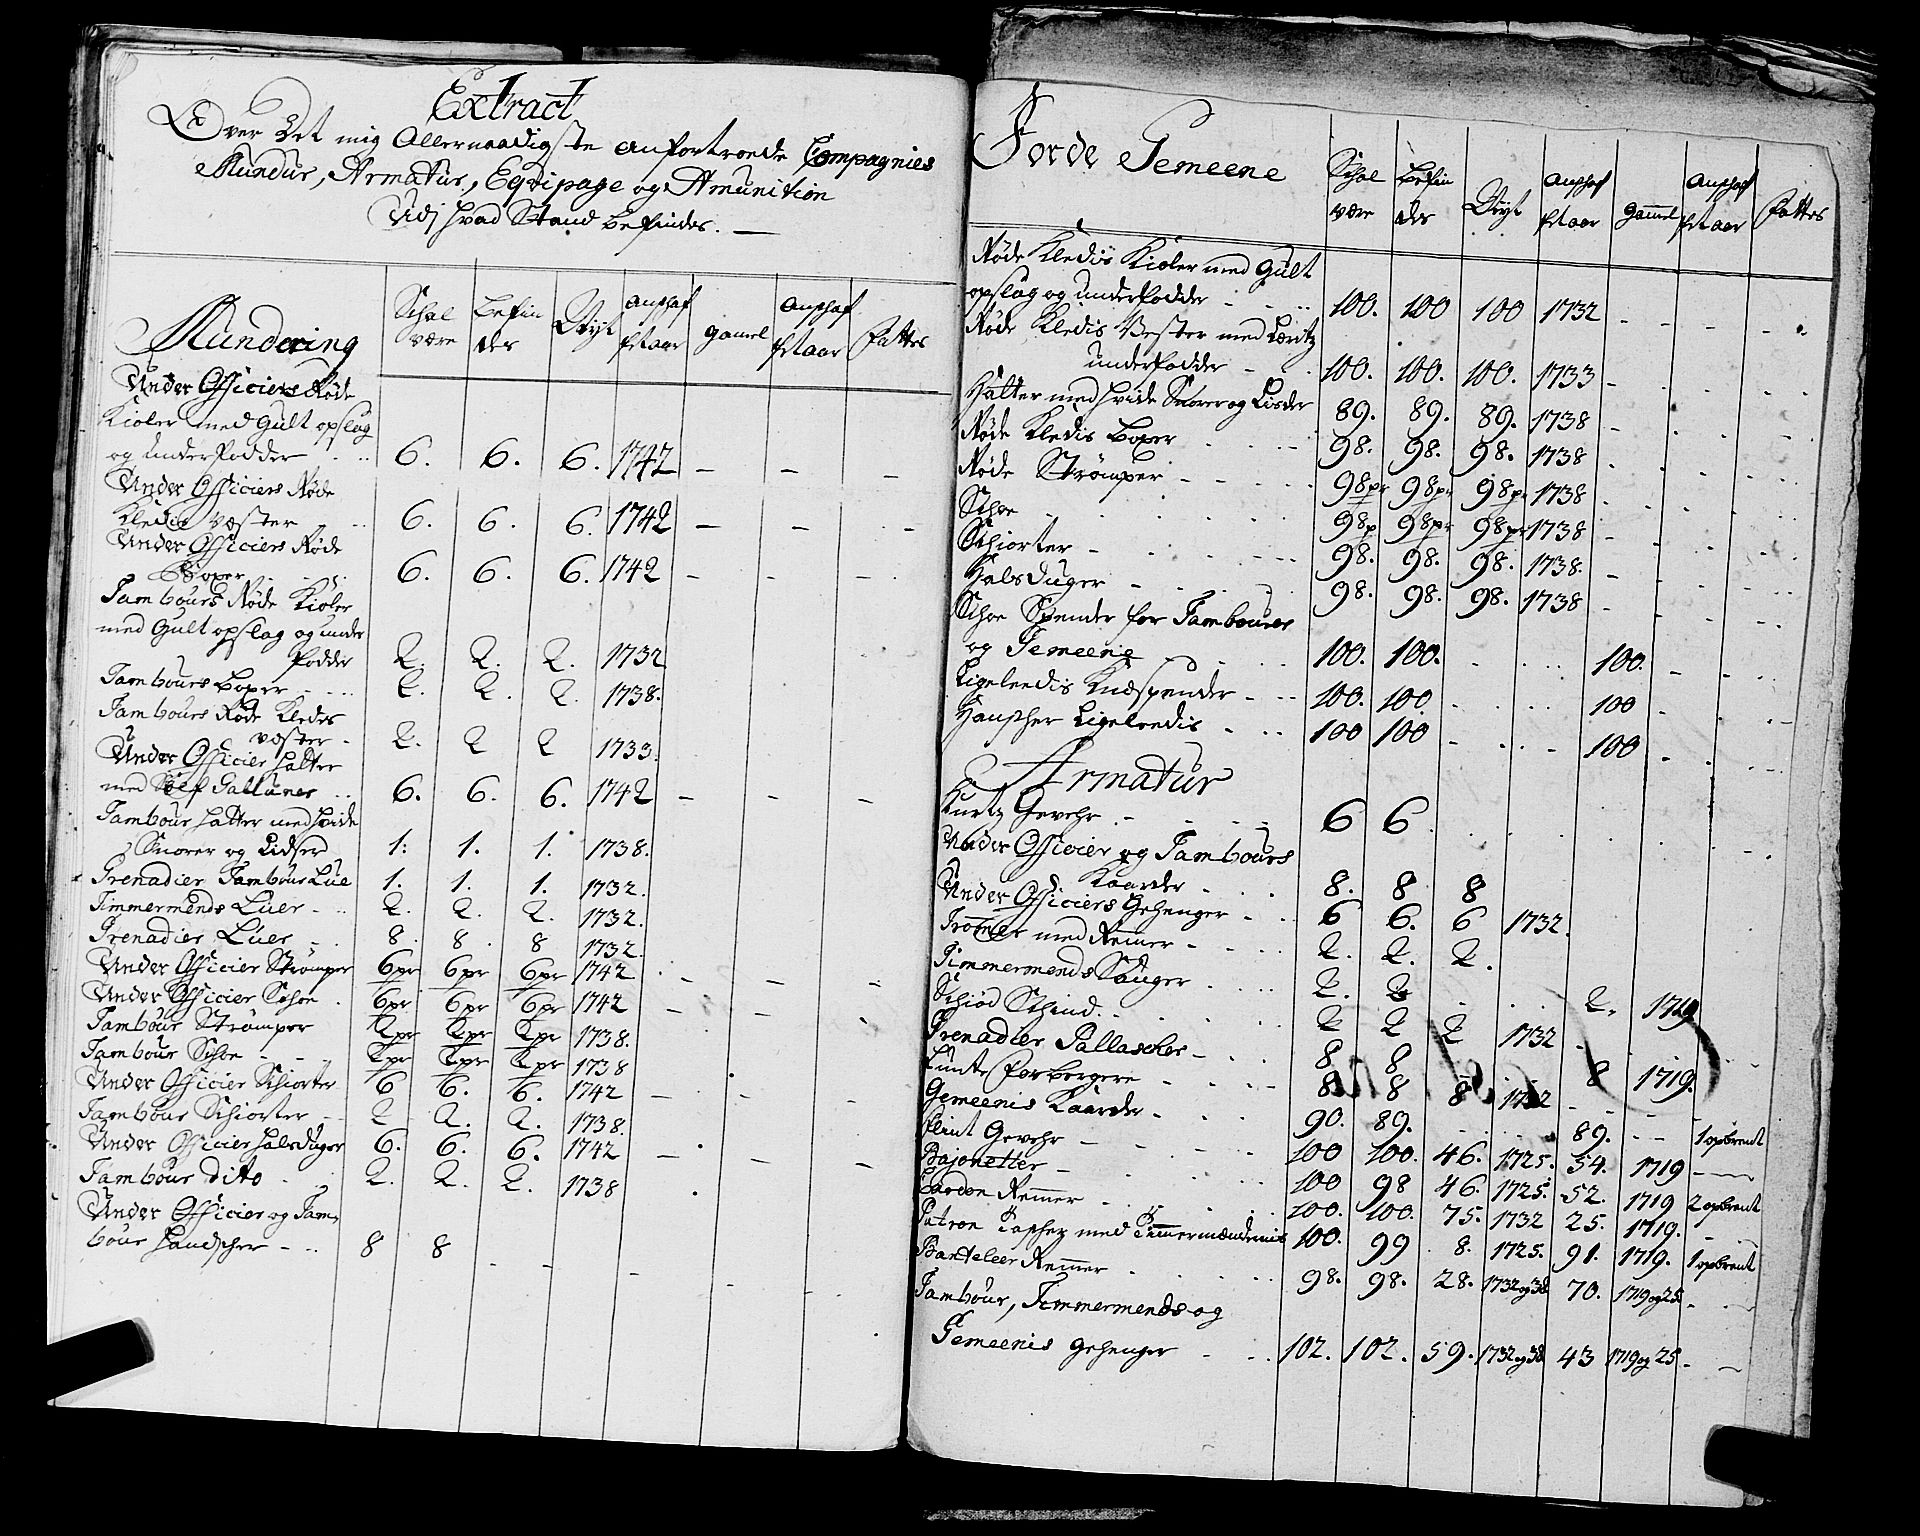 Extract
Over Det mig Allernaadigste anfortroede Compagnies
Mundur, Armatur, Eqvipage og Amunition
Udj hvad Stand befindes. —
Mundering | Schal være | befin des | Dÿgt | Anschaf fet aar | gamel | Anschaf fet aar | fattes
Under Officiers Røde
Kioler med Gult opslag
og underfodder - - 6. 6. 6. 1742 — — —
Under Officiers Røde
Kledis Vester - - 6. 6. 6. 1742 — — —
Under Officiers Røde
Boxer - - 6. 6. 6. 1742 - - -
Tambours Røde Kioler
med Gult opslag og under
fodder 2. 2. 2. 1732
Tambours boxer - - 2. 2. 2. 1738.
Tambours Røde Kledes
vester - 2. 2 2 1733.
Under Officier hatter
med Sølf Gallunes - 6. 6. 6. 1742 — - —
Tambour hatter med hvide
Snorer og Lidser 1. 1. 1. 1738.
Grenadier Tambour Lue 1. 1. 1. 1732.
Timmermends Luer - - 2. 2. 2. 1732.
Grenadier Luer - - 8. 8. 8 1732.
Under Officier Strømper 6pr 6pr 6pr 1742 - — -
Under Officier Schoe . 6pr 6pr 6pr 1742 - - -
Tambour Strømper 2pr 2pr 2pr 1738.
Tambour Schoe - - 2pr 2pr 2pr 1738
Under Officier Schiorter 6 6. 6. 1742 — - —
Tambour Schiorter - - 2 2. 2. 1738.
Under Officier halsduger 6. 6. 6. 1742 — — —
Tambour dito - - 2. 2. 2. 1738
Under Officier og Tam-
bour handscher - - 8 8 - - - -
Forde Gemeene | Schal være | Befin des | Dÿgt | Anschaf fet aar | gamel | Anschaf fet aar | fattes
Røde Kledis Kioler med Gult
opslag og underfodder - - 100. 100 100 1732 - - -
Røde Kledis Vester med Lerits
underfodder - - 100. 100. 100. 1733 -
Hatter med hvide Snorer og Lisder 89. 89. 89. 1738 -
Røde Kledis boxer - - 98. 98. 98. 1738 -
Røde Strømper - - 98pr 98pr 98pr 1738
Schoe - - 98p 98pr 98pr 1738
Schiorter - - 98. 98. 98. 1738. -
Halsduger - - 98. 98. 98. 1738 -
Schoe Spender for Tambourer
og Gemeene - - 100. 100. - - 100. - -
Ligeleedis Knæspender - - 100. 100. - - 100 -
Hanscher Ligeleedis - - 100 100 - - 100
Armatur
Kurtz Gevehr - - 6 6.
Under Officier og Tambours
Kaarder - - 8. 8 8
Under Officiers Gehenger - - 6 6. 6 1732.
Tromer med Remer - - 2. 2. 2.
Timmermends Sauger - - 2. 2 - - 2. 1719
Schiød Schind. - - 2 2 2 1732 -
Grenadier Pallascher - - 8 8 - - 8 1719.
Lunte forbergere - - 8 8 8 1732 - -
Gemeenis Kaarder - - 90. 89. - - 89. - - 1 opbrent
Flint Gevehr - - 100 100. 46. 1725. 54. 1719 - -
Bajonetter - - 100 98 46. 1725. 52. 1719 2 opbrent
Remer - - 100. 100. 75. 1732 25. 1719. -
Patron Tascher med Timmermændenis 100. 99 8. 1725. 91. 1719. 1 opbrent
Banteleer Remer - - 98. 98. 28. 1732 og 38 70. 1719 og 25 - -
Tambour, Timmermends og
Gemeenis gehenger - - 102. 102. 59. 1732 og 38 43 1719 og 25 - -